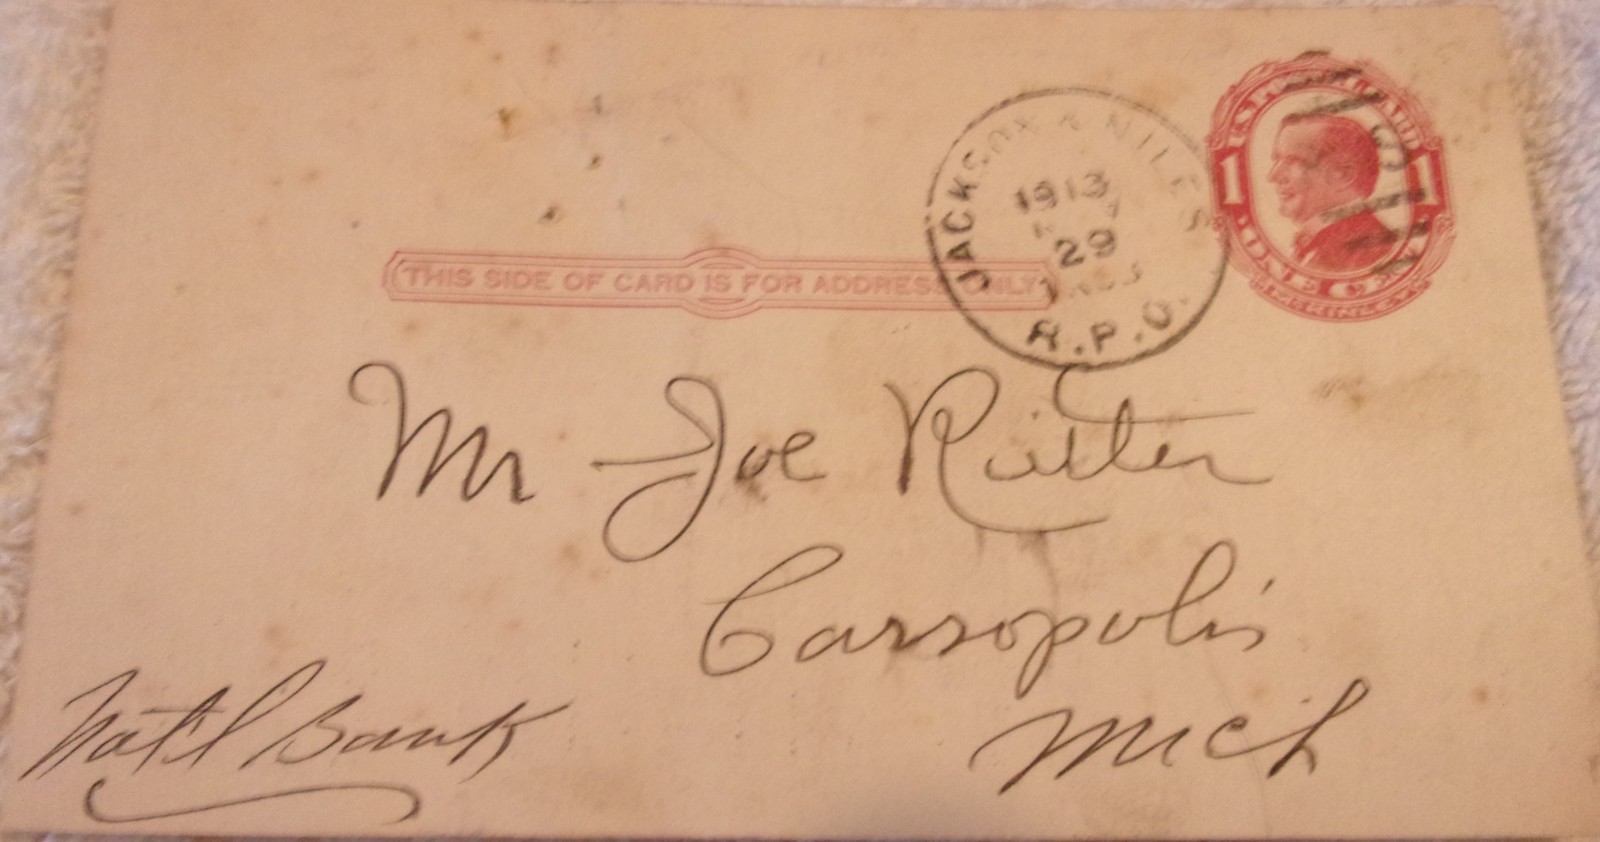 U.S. POSTAL CARD
1 1
ONE CENT
McKINLEY
JACKSON & NILES
1913
29
R.P.O.
THIS SIDE OF CARD IS FOR ADDRESS ONLY
Mr Joe Ritter
Cassopolis
Mich
Nat'l Bank